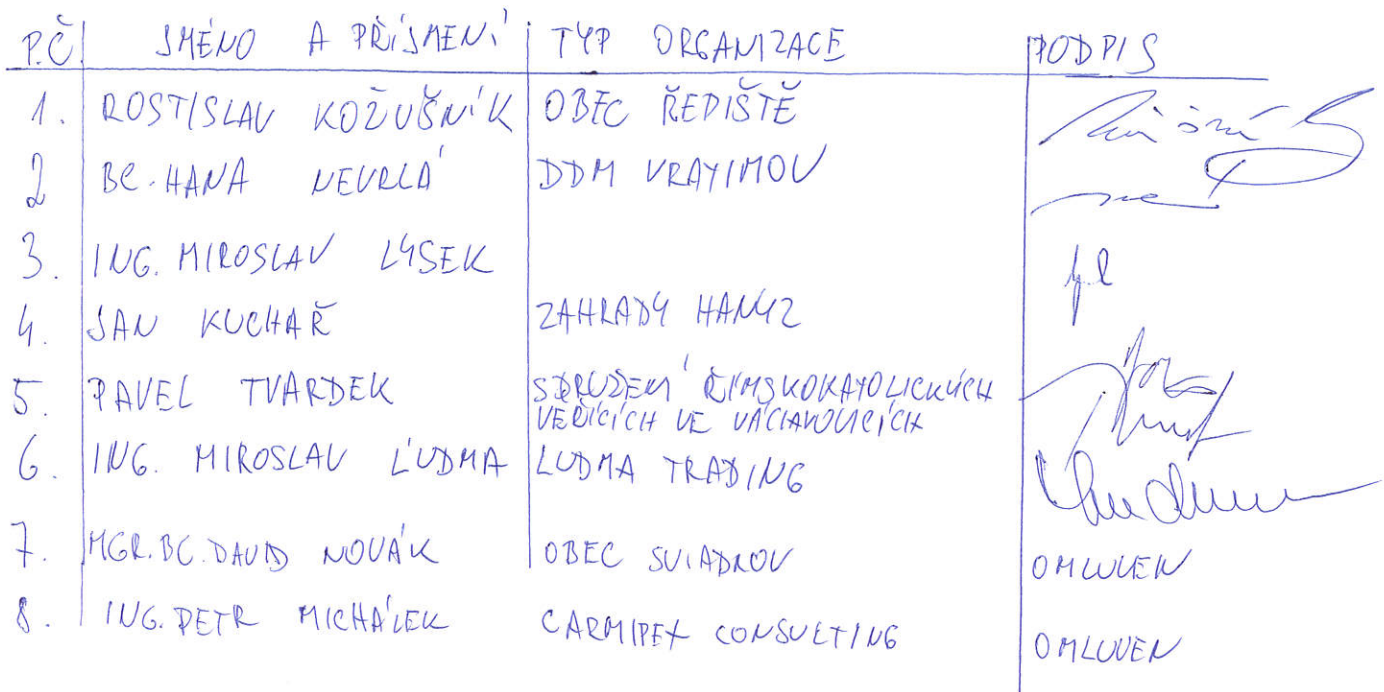 P.Č. JMÉNO A PŘÍJMENÍ TYP ORGANIZACE PODPIS
1. ROSTISLAV KOŽUŠNÍK OBEC ŘEPIŠTĚ
2 BC. HANA NEVRLÁ DDM VRATIMOV
3. ING. MIROSLAV LYSEK
4. JAN KUCHAŘ ZAHRADY HANYZ
5. PAVEL TVARDEK SDRUŽENÍ ŘÍMSKOKATOLICKÝCH
VĚŘÍCÍCH VE VÁCLAVOVICÍCH
6. ING. MIROSLAV ĽUDMA LUDMA TRADING
7. MGR. BC. DAVID NOVÁK OBEC SVIADNOV OMLUVEN
8. ING. PETR MICHÁLEK CARMIPEX CONSULTING OMLUVEN